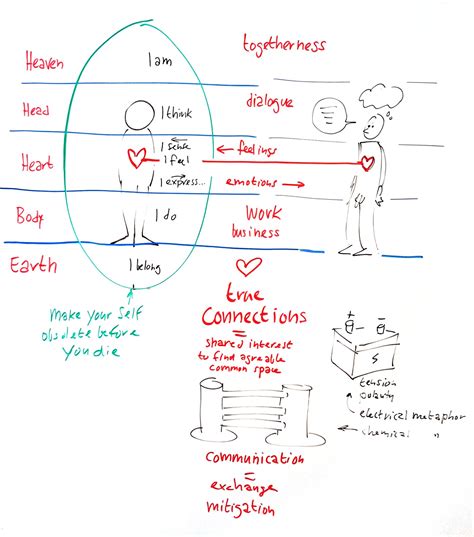 Heaven
I am
togetherness
Head
I think
dialogue
I sense
feelings
Heart
I feel
I express...
emotions
Body
I do
Work
business
Earth
I belong
make your self
obsolete before
you die
true
Connections
=
shared interest
to find agreable
common space
+
-
tension
polarity
electrical metaphor
chemical "
communication
=
exchange
mitigation